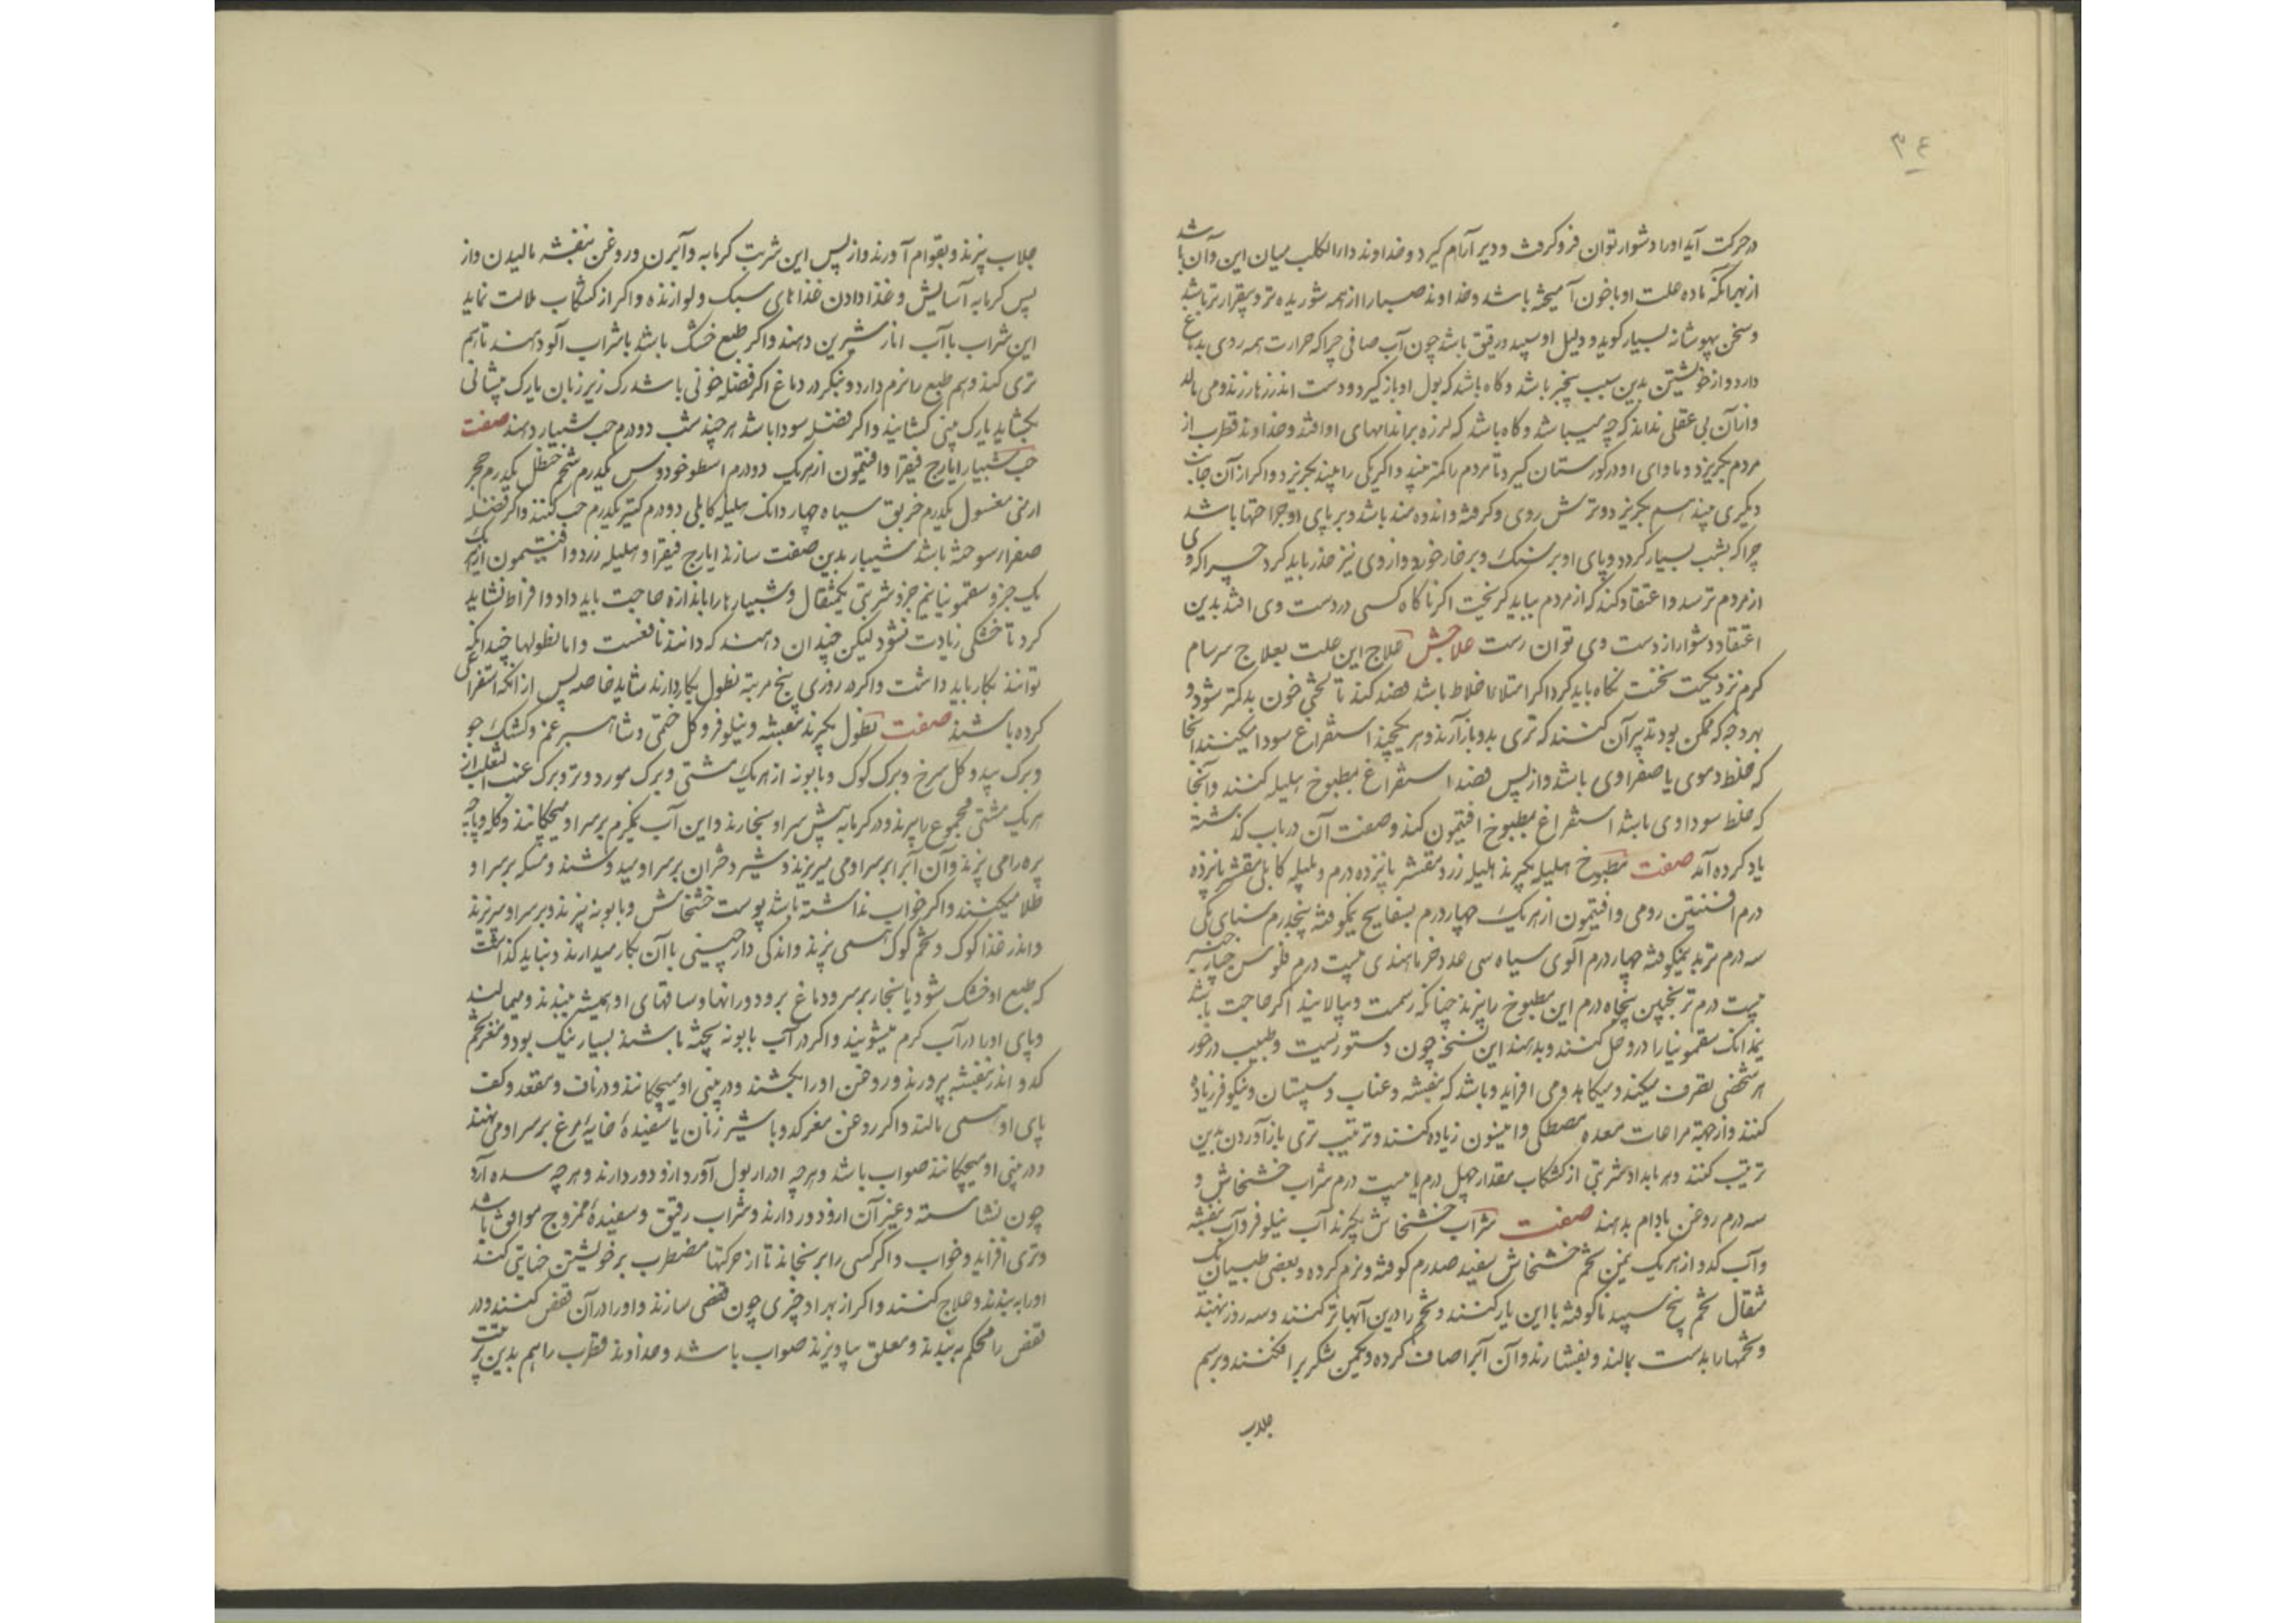 ۳۴
در حرکت آید او را دشوار توان فرو گرفت و دیر آرام گیرد و خداوند داء الکلب میان این و آن باشد
از بهر آنکه ماده علت او با خون آمیخته باشد و خداوند صبارا از همه شوریده‌تر و بیقرارتر باشد
و سخن بیهوشانه بسیار گوید و دلیل او سپید و رقیق باشد چون آب صافی چراکه حرارت همه روی بدماغ
دارد و از خویشتن بدین سبب بیخبر باشد و گاه باشد که بول او بازگیرد و دست اندر زهار زند و می مالد
و از آن بی عقلی نداند که چه میباشد و گاه باشد که لرزه بر اندامهای او افتد و خداوند قطرب از
مردم بگریزد و ماوای او در گورستان گیرد تا مردم را کمتر بیند و اگر یکی را بیند بگریزد و اگر از آن جانب
دیگری بیند هم بگریزد و ترش روی و گرفته و اندوه مند باشد و بر پای او جراحتها باشد
چراکه بشب بسیار گردد و پای او بر سنگ و بر خار خورد و از وی نیز حذر باید کرد چراکه وی
از مردم ترسد و اعتقاد کند که از مردم بباید گریخت اگر ناگاه کسی در دست وی افتد بدین
اعتقاد دشوار از دست وی توان رست علاجش علاج این علت بعلاج سرسام
گرم نزدیکست نخست نگاه باید کرد اگر امتلاء اخلاط باشد فصد کند تا لختی خون بد کمتر شود و
بهر وجه که ممکن بود تدبیر آن کنند که تری بدو باز آرند و هر یکچند استفراغ سودا میکنند آنجا
که خلط دموی یا صفراوی باشد و از پس فصد استفراغ بمطبوخ هلیله کنند و آنجا
که خلط سوداوی باشد استفراغ بمطبوخ افتیمون کند و صفت آن در باب گذشته
یاد کرده آمد صفت مطبوخ هلیله بگیرند هلیله زرد مقشر پانزده درم و هلیله کابلی مقشر پانزده
درم افسنتین رومی و افتیمون از هر یک چهار درم بسفایج نیکوفته پنجدرم سنای مکی
سه درم تربد نیمکوفته چهار درم آلوی سیاه سی عدد خرما هندی بیست درم فلوس خیارچنبر
بیست درم ترنجبین پنجاه درم این مطبوخ را بپزند چنانکه رسمت و بپالایند اگر حاجت باشد
نیمدانک سقمونیا را در و حل کنند و بدهند این نسخه چون دستوریست و طبیب در خور
هر شخصی تصرف میکند و میکاهد و می افزاید و باشد که بنفشه و عناب و سپستان و نیلوفر زیاده
کنند و از جهة مراعات معده مصطکی و انیسون زیاده کنند و ترتیب تری باز آوردن بدین
ترتیب کنند و هر بامداد شربتی از کشکاب مقدار چهل درم یا بیست درم شراب خشخاش و
سه درم روغن بادام بدهند صفت شراب خشخاش بگیرند آب نیلوفر و آب بنفشه
و آب کدو از هر یک یمن تخم خشخاش سفید صد درم کوفته و نرم کرده و بعضی طبیبان یک
مثقال تخم بنج سپید ناکوفته با این یار کنند و تخم را درین آبها تر کنند و سه روز بنهند
و تخمها را بدست بمالند و بفشارند و آن آبرا صاف کرده و یکمن شکر بر افکنند و برسم
جلاب
جلاب بپزند و بقوام آورند و از پس این شربت گرمابه و آبزن و روغن بنفشه مالیدن و از
پس گرمابه آسایش و غذا دادن غذاهای سبک و لوازنده و اگر از کشکاب ملالت نماید
این شراب با آب انار شیرین دهند و اگر طبع خشک باشد با شراب آلو دهند تا هم
تری کند و هم طبع را نرم دارد و بنگرد در دماغ اگر فضله خونی باشد رک زیر زبان یا رک پیشانی
بکشاید یا رک بینی کشایند و اگر فضله سودا باشد هر چند شب دو درم حب شبیار دهند صفت
حب شبیار ایارج فیقرا و افتیمون از هر یک دو درم اسطوخودوس یکدرم شحم حنظل یکدرم حجر
ارمنی مغسول یکدرم خربق سیاه چهار دانک هلیله کابلی دو درم کتیرا یکدرم حب کنند و اگر فضله
صفرا سوخته باشد شبیار بدین صفت سازند ایارج فیقرا و هلیله زرد و افتیمون از هر یک
یک جزو سقمونیا نیم جزو شربتی یکمثقال و شبیارها را باندازه حاجت باید داد و افراط نشاید
کرد تا خشکی زیادت نشود لیکن چندان دهند که دانند نافعست و اما نطولها چندانکه
توانند بکار باید داشت و اگر در روزی پنج مرتبه نطول بکار دارند شاید خاصه پس از آنکه استفراغی
کرده باشند صفت نطول بگیرند بنفشه و نیلوفر و گل خطمی و شاهسبرغم و کشک جو
و برگ بید و گل سرخ و برگ کوک و بابونه از هر یک مشتی و برگ مورد و تر و برگ عنب الثعلب از
هر یک مشتی مجموع را بپزند و در گرمابه پیش سر او بخارند و این آب نیمگرم بر سر او میچکانند و کله و پاچه
بره را می پزند و آن آبرا بر سر او می میریزند و شیر دختران بر سر او میدوشند و مسکه بر سر او
طلا میکنند و اگر خواب نداشته باشد پوست خشخاش و بابونه بپزند و بر سر او میریزند
و اندر غذا کوک و تخم کوک همی پزند و اندکی دارچینی با آن بکار میدارند و نباید گذاشت
که طبع او خشک شود یا بخار بر سر و دماغ برود و رانها و ساقهای او همیشه ببندند و میمالند
و پای او را در آب گرم میشویند و اگر در آب بابونه پخته باشند بسیار نیک بود و مغز تخم
کدو اندر بنفشه پرورند و روغن او را بکشند و در بینی او میچکانند و در ناف و مقعد و کف
پای او همی مالند و اگر روغن مغز کدو با شیر زنان یا سفیدهٔ خایهٔ مرغ بر سر او می نهند
و در بینی او میچکانند صواب باشد و هر چه ادرار بول آورد ازو دور دارند و هر چه سده آرد
چون نشاسته و غیر آن ازو دور دارند و شراب رقیق و سفیدهٔ ممزوج موافق باشد
و تری افزاید و خواب و اگر کسی را برنجاند تا از حرکتها مضطرب بر خویشتن جنایتی کند
او را به بندند و علاج کنند و اگر از بهر او چیزی چون قفص سازند و او را در آن قفص کنند و در
قفص را محکم به بندند و معلق بیاویزند صواب باشد و خداوند قطرب را هم بدین ترتیب